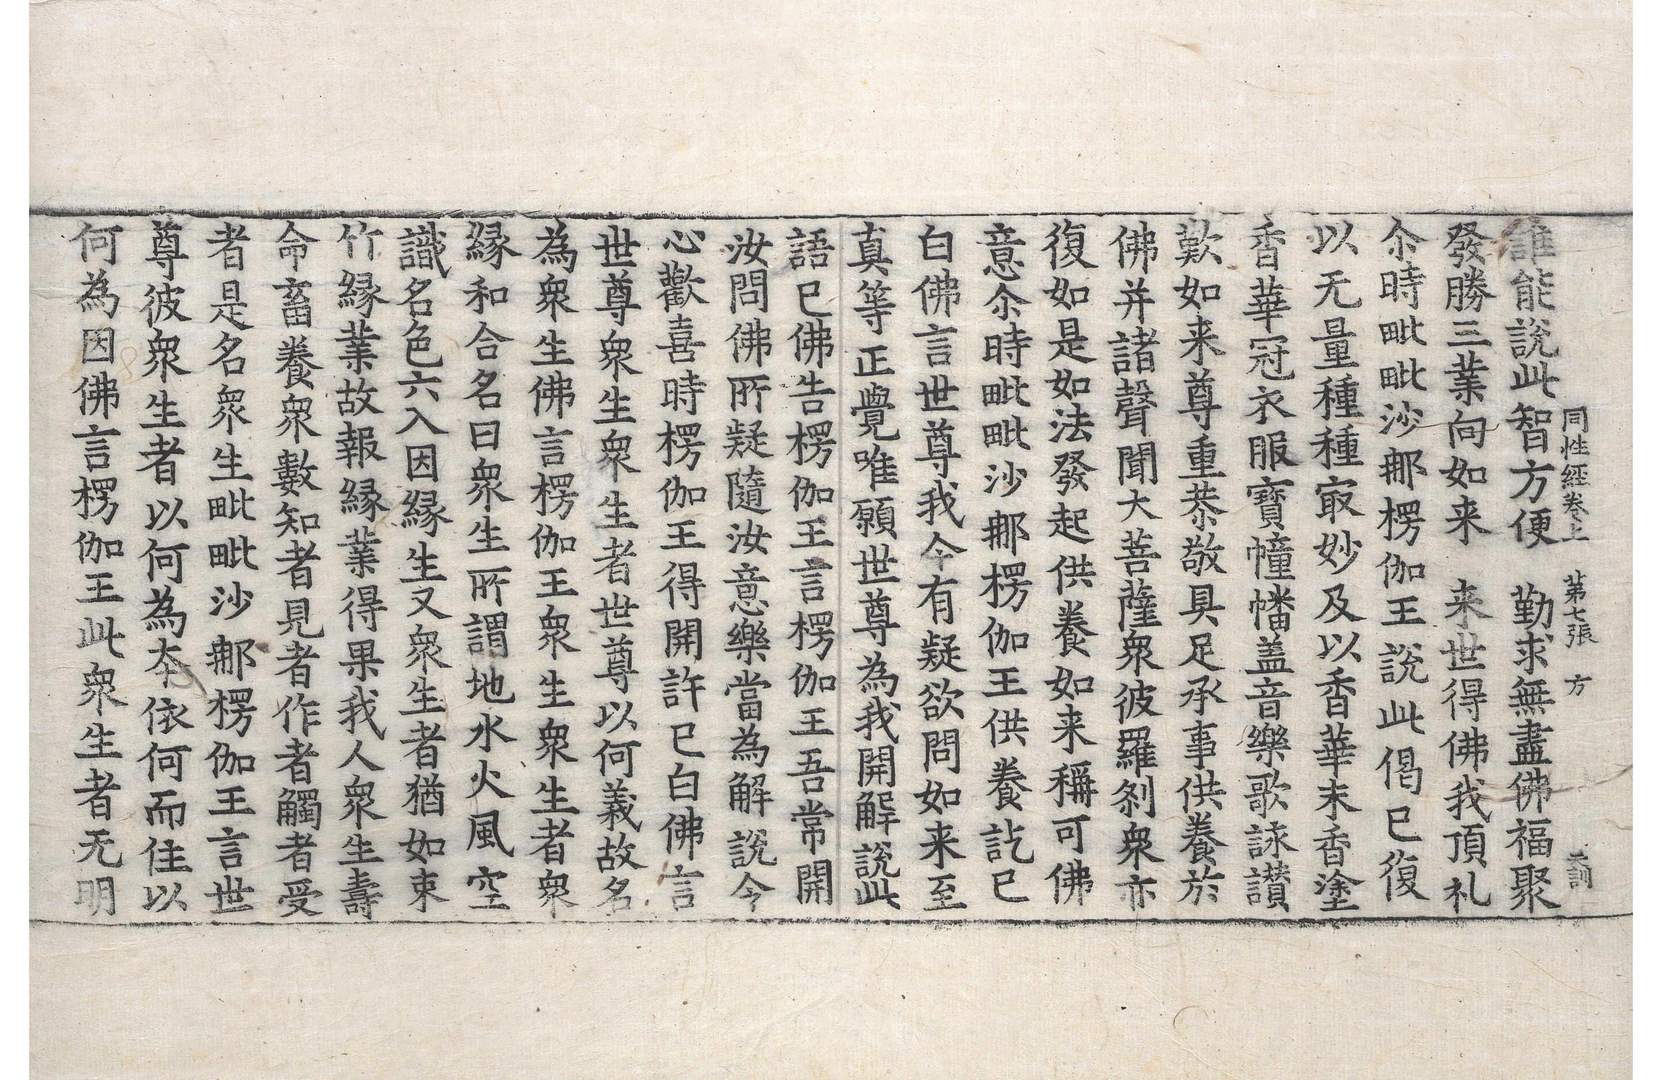 同性經卷上 第七張 方
誰能說此智方便 勤求無盡佛福聚
發勝三業向如来 来世得佛我頂礼
尒時毗毗沙郍楞伽王說此偈已復
以无量種種㝡妙及以香華末香塗
香華冠衣服寶幢幡盖音樂歌詠讃
歎如来尊重恭敬具足承事供養於
佛并諸聲聞大菩薩衆彼羅刹衆亦
復如是如法發起供養如来稱可佛
意尒時毗毗沙郍楞伽王供養訖已
白佛言世尊我今有疑欲問如来至
真等正覺唯願世尊為我開解說此
語已佛告楞伽王言楞伽王吾常開
汝問佛所疑隨汝意樂當為解說令
心歡喜時楞伽王得開許已白佛言
世尊衆生衆生者世尊以何義故名
為衆生佛言楞伽王衆生衆生者衆
縁和合名曰衆生所謂地水火風空
識名色六入因縁生又衆生者猶如束
竹縁業故報縁業得果我人衆生壽
命畜養衆數知者見者作者觸者受
者是名衆生毗毗沙郍楞伽王言世
尊彼衆生者以何為夲依何而住以
何為因佛言楞伽王此衆生者无明